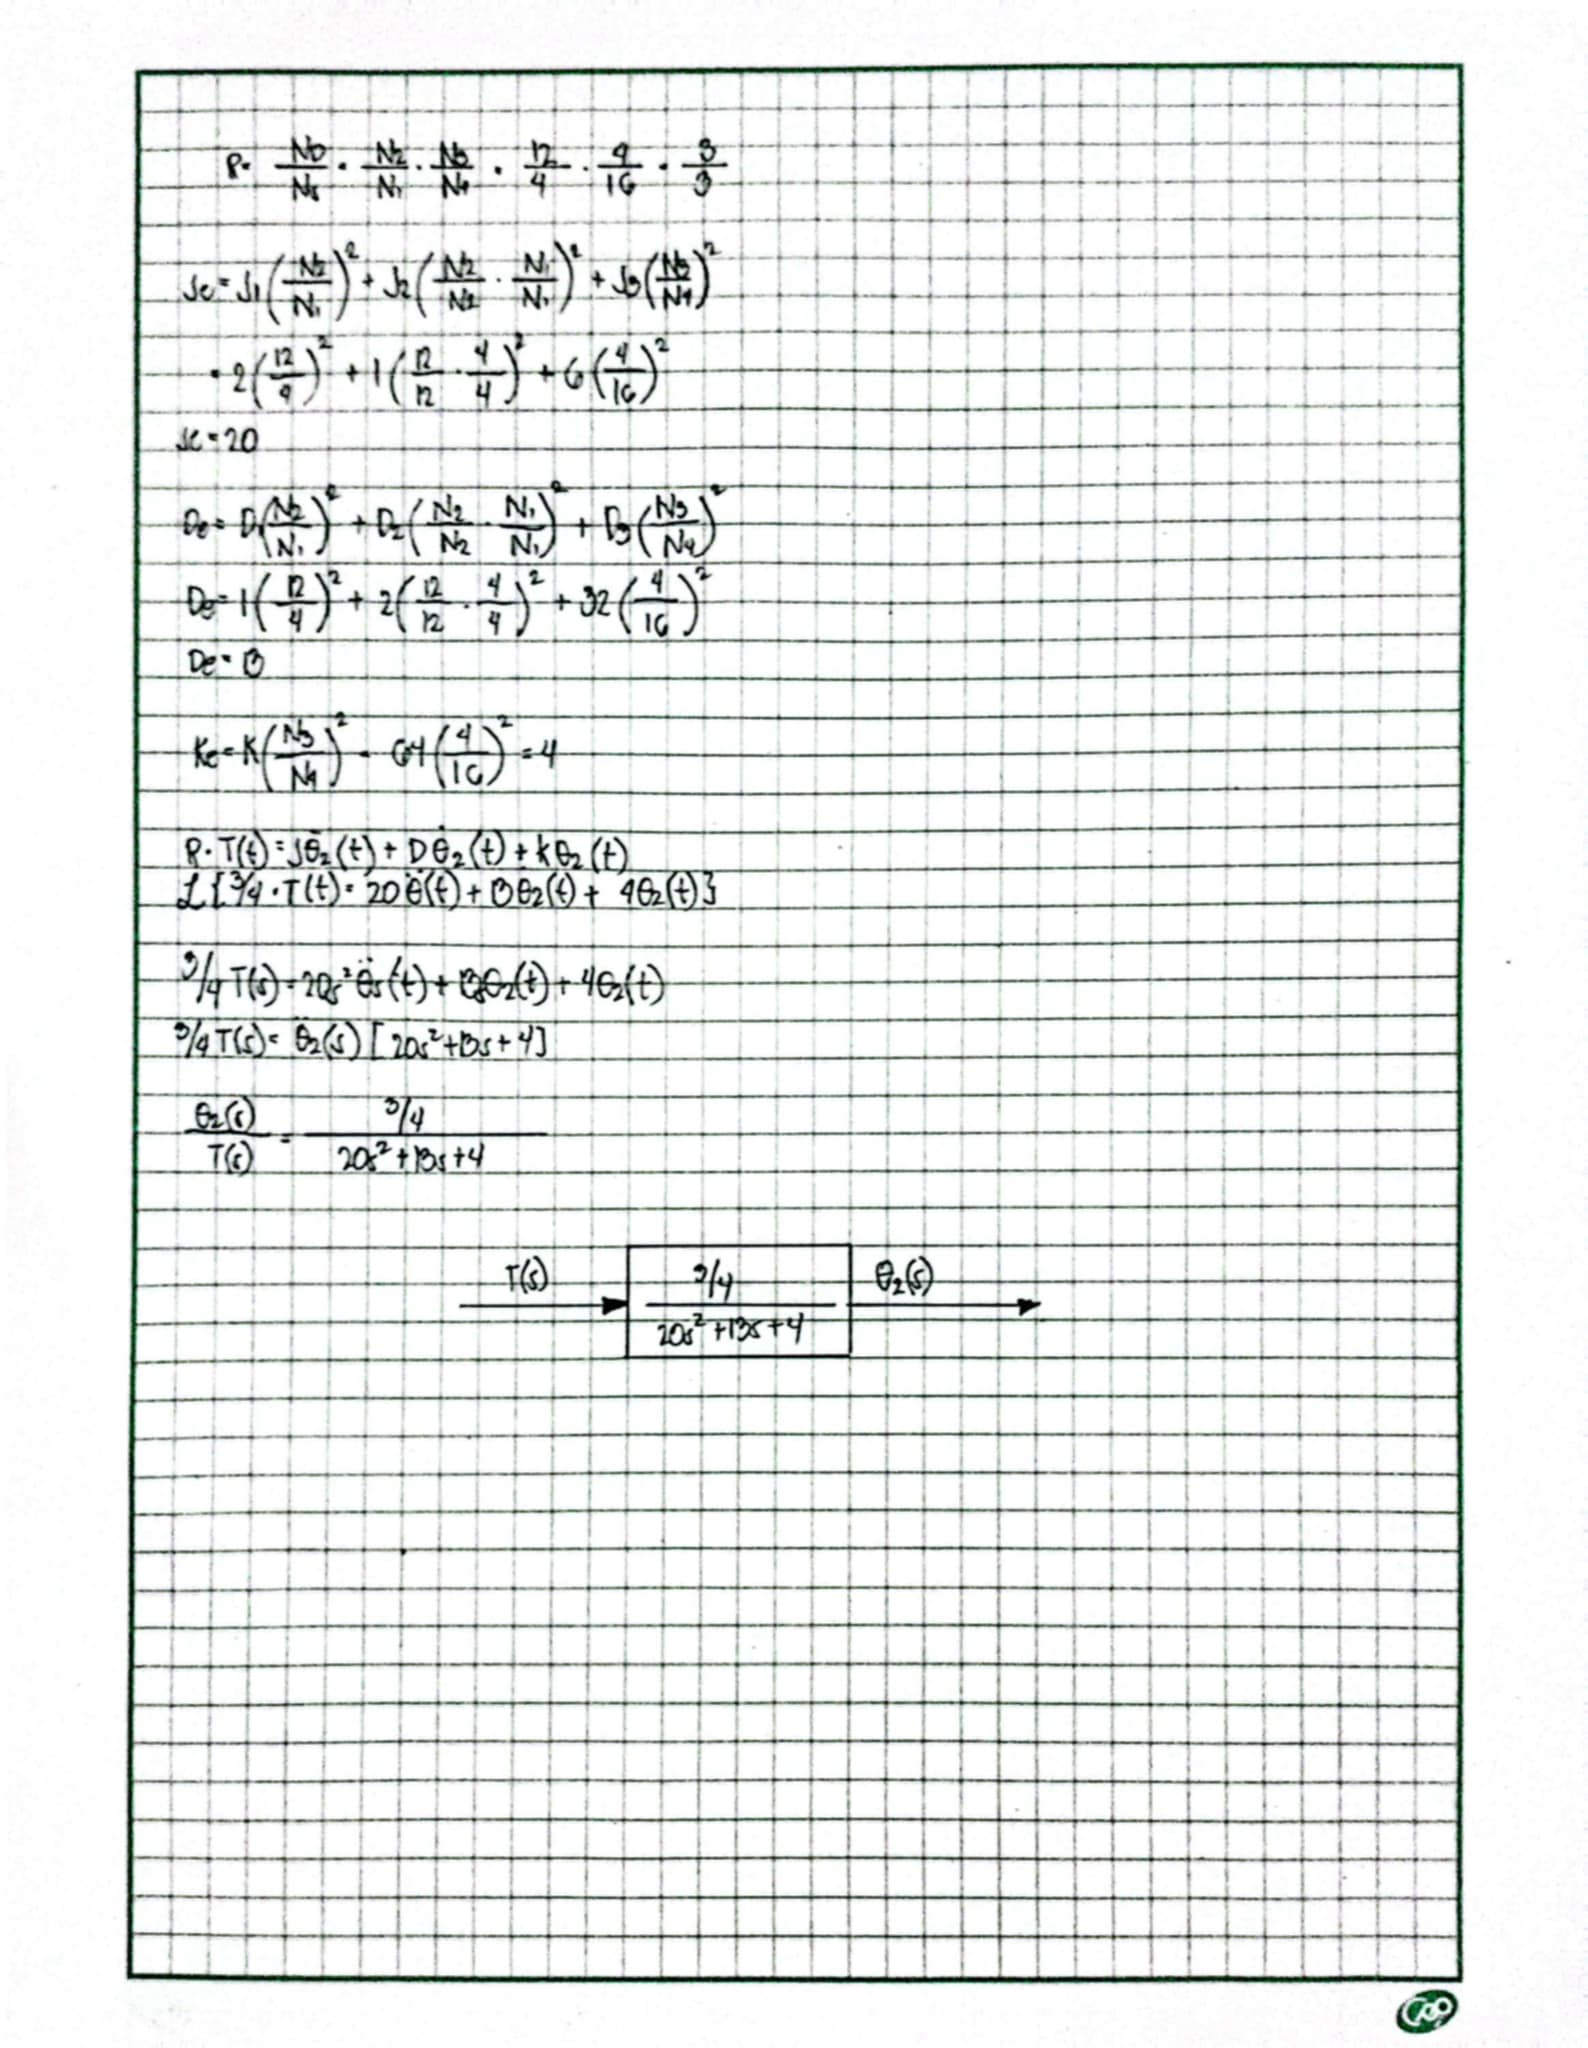 R = N₂/N₁ · N₂/N₁ · N₃/N₄ = 12/4 · 4/16 · 3/3
Je = J₁(N₂/N₁)² + J₂(N₂/N₂ · N₁/N₁)² + J₃(N₃/N₄)²
= 2(12/4)² + 1(12/12 · 4/4)² + 6(4/16)²
Je = 20
De = D₁(N₂/N₁)² + D₂(N₂/N₂ · N₁/N₁)² + D₃(N₃/N₄)²
De = 1(12/4)² + 2(12/12 · 4/4)² + 32(4/16)²
De = 13
Ke = K(N₃/N₄)² = 64(4/16)² = 4
R · T(t) = Jθ̈₂(t) + Dθ̇₂(t) + kθ₂(t)
ℒ{3/4 · T(t) = 20θ̈(t) + 13θ₂(t) + 4θ₂(t)}
3/4 T(s) = 20s² θ̈s(t) + 13sθ₂(t) + 4θ₂(t)
3/4 T(s) = θ₂(s) [20s² + 13s + 4]
θ₂(s)/T(s) = 3/4 / 20s² + 13s + 4
T(s) 3/4 / 20s² + 13s + 4 θ₂(s)